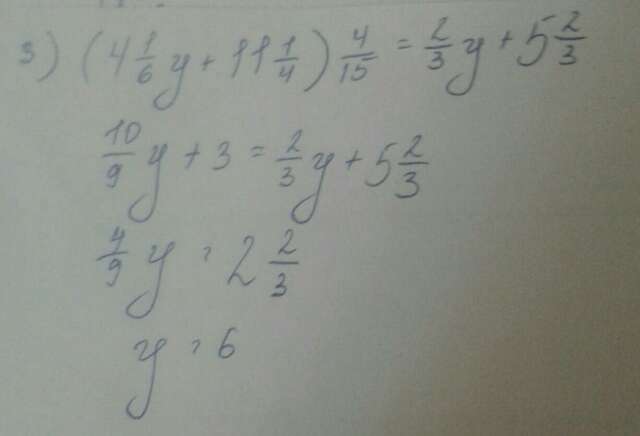 3) (4 1/6 y + 11 1/4) 4/15 = 2/3 y + 5 2/3
10/9 y + 3 = 2/3 y + 5 2/3
4/9 y = 2 2/3
y = 6